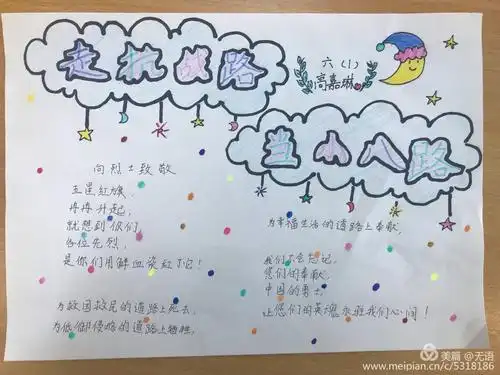 走抗战路
六（1）
高嘉琳
当小八路
向烈士致敬
五星红旗，
冉冉升起，
就想到你们，
各位先烈，
是你们用鲜血染红了它！
为救国救民的道路上死去，
为抵御侵略的道路上牺牲，
为幸福生活的道路上奉献，
我们不会忘记，
您们的奉献，
中国的勇士，
让您们的英魂永驻我们心间！
美篇 @无语
www.meipian.cn/c/5318186